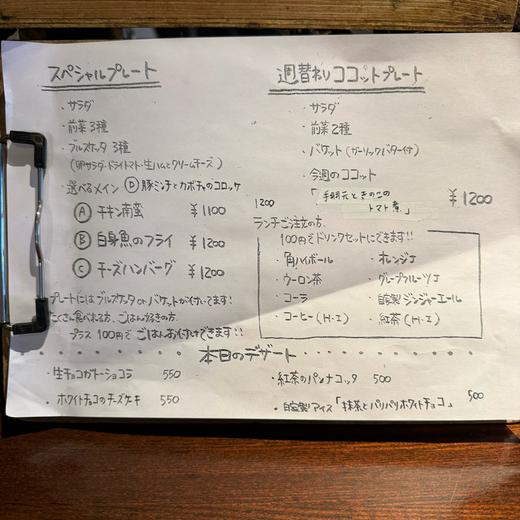 スペシャルプレート
・サラダ
・前菜3種
・ブルスケッタ 3種
(卵サラダ・ドライトマト・生ハムとクリームチーズ)
・選べるメイン Ⓓ 豚ミンチとカボチャのコロッケ
1200
Ⓐ チキン南蛮 ¥1100
Ⓑ 白身魚のフライ ¥1200
Ⓒ チーズハンバーグ ¥1200
プレートにはブルスケッタ or バケットが付いてます!
たくさん食べれる方、ごはん好きの方、
プラス 100円で ごはんお付けできます!!
週替わりココットプレート
・サラダ
・前菜2種
・バケット(ガーリックバター付)
・今週のココット
「手羽元ときのこの
トマト煮」
¥1200
ランチご注文の方、
100円でドリンクセットにできます!!
・角ハイボール ・オレンジJ
・ウーロン茶 ・グレープフルーツJ
・コーラ ・自家製ジンジャーエール
・コーヒー(H・I) ・紅茶(H・I)
本日のデザート
・生チョコガトーショコラ 550
・紅茶のパンナコッタ 500
・ホワイトチョコのチーズケーキ 550
・自家製アイス「抹茶とパリパリホワイトチョコ」 500